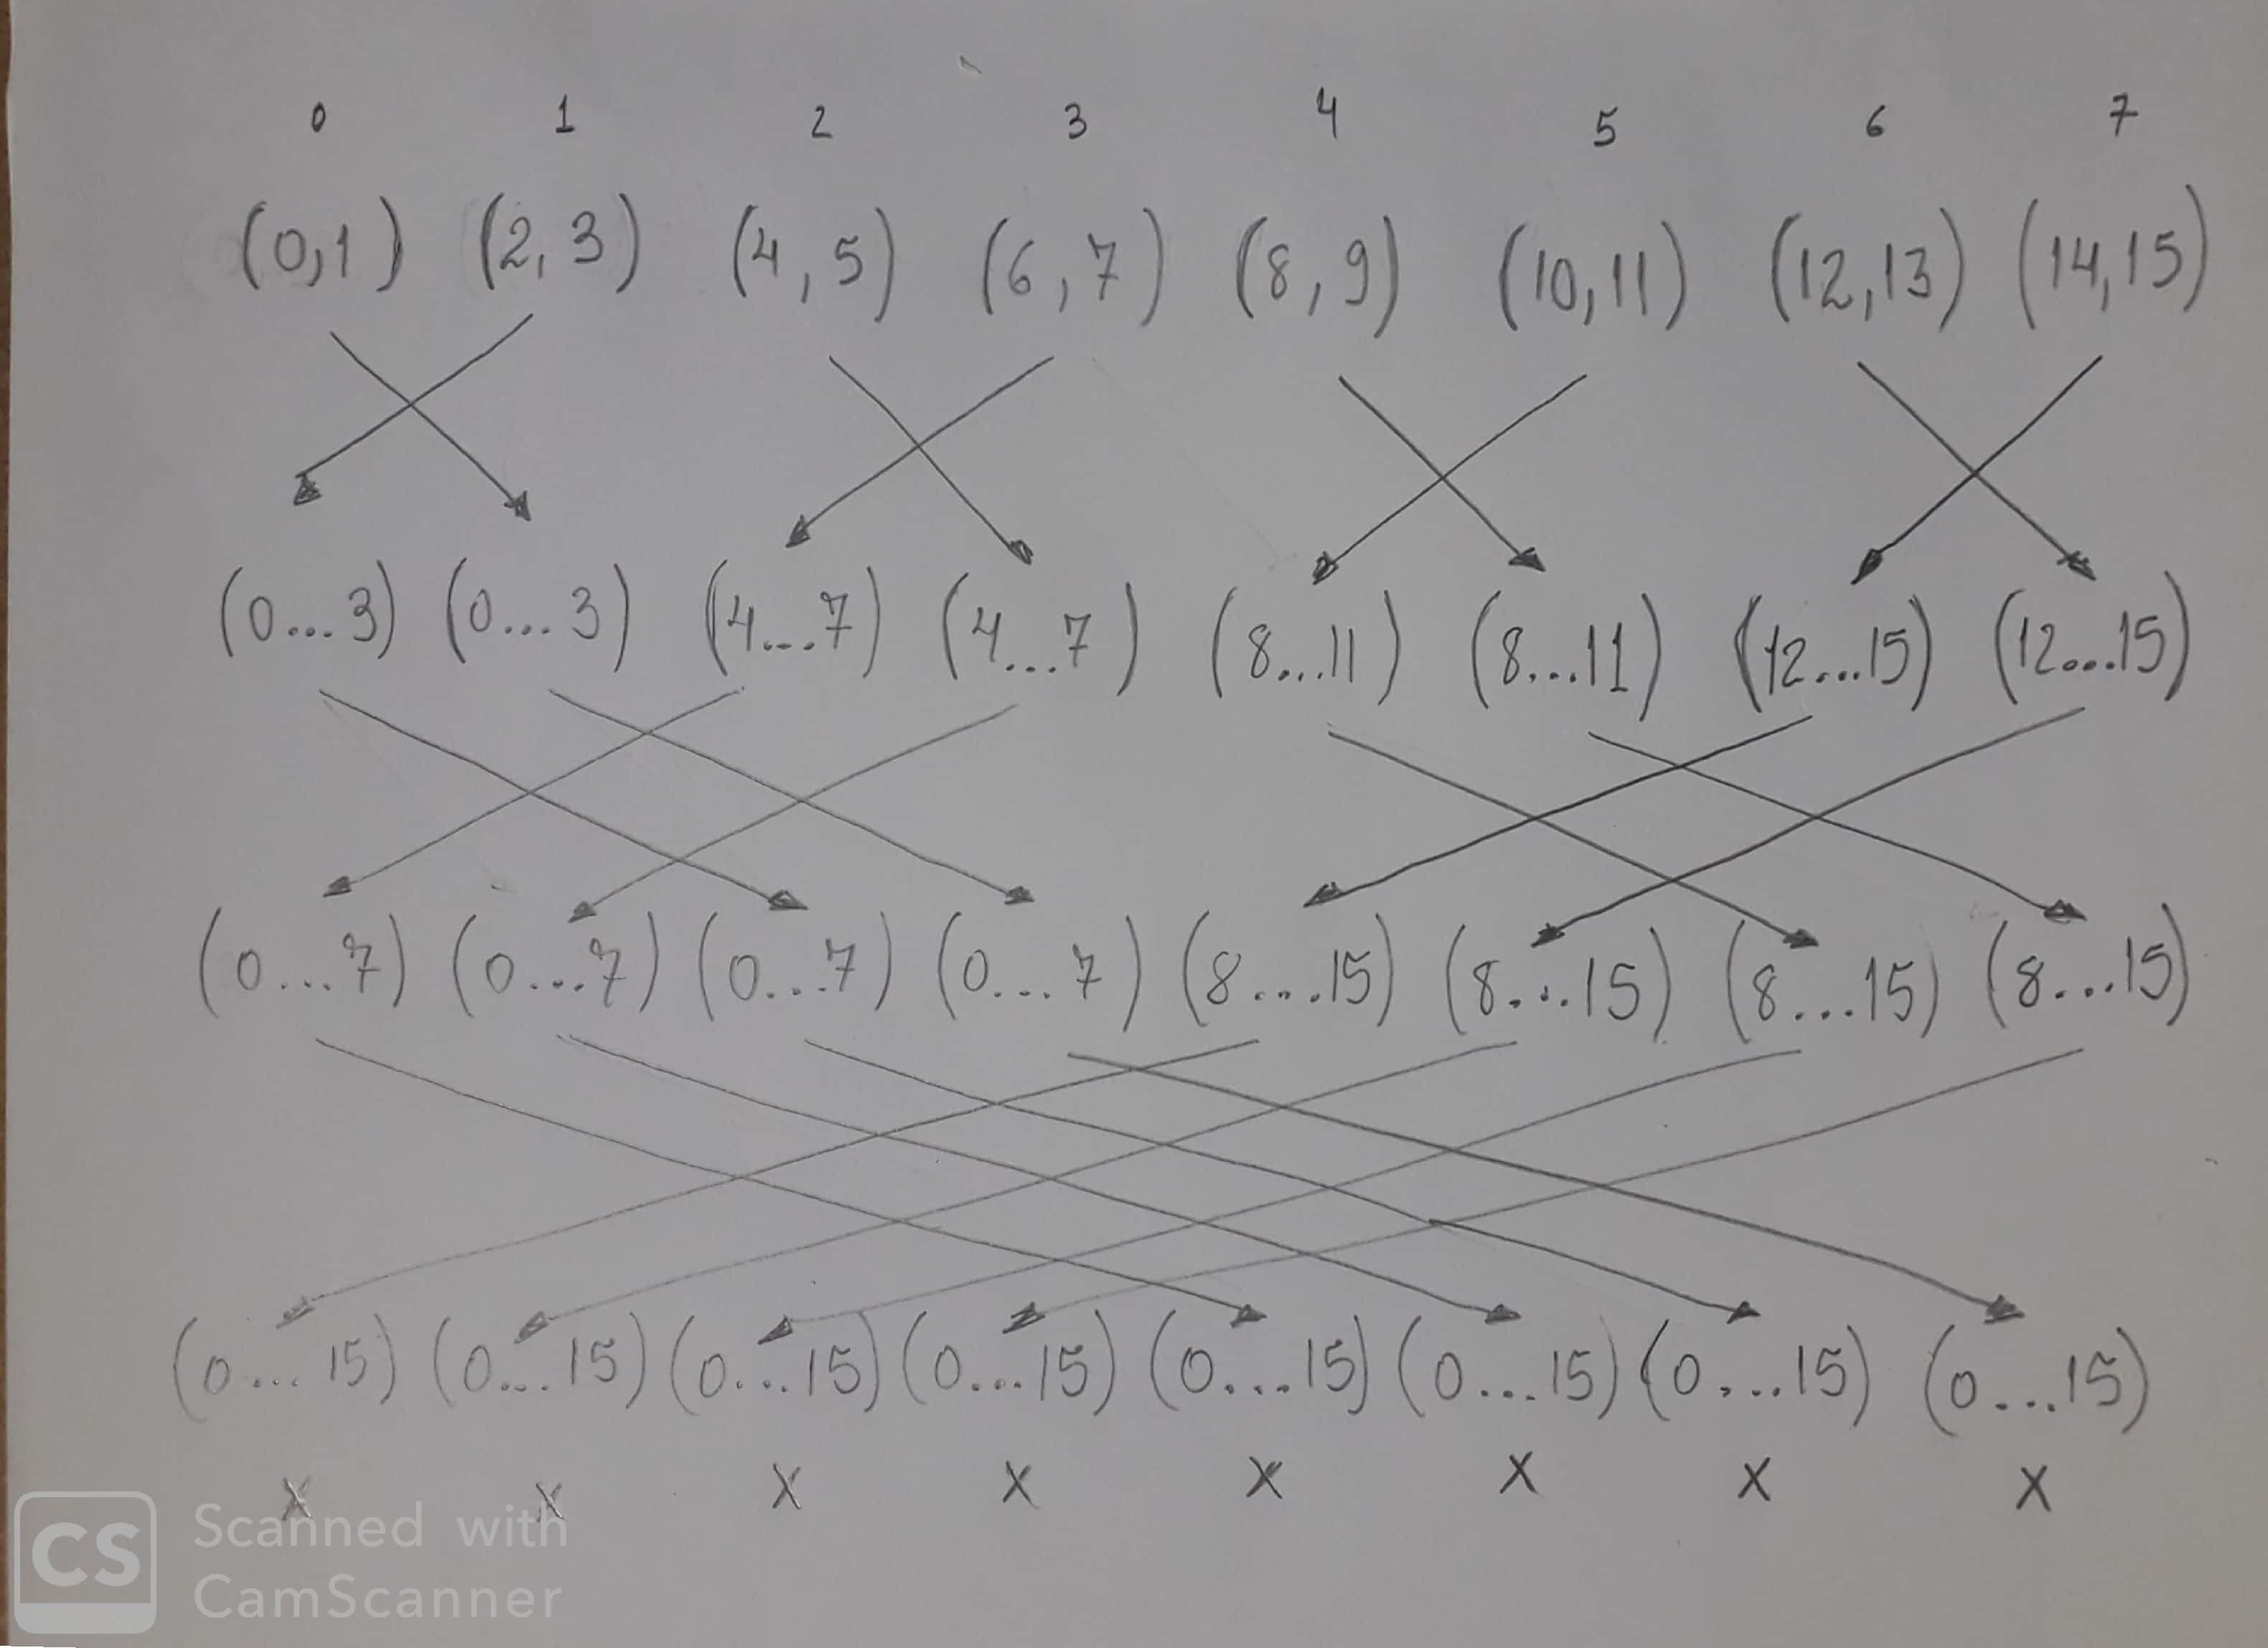 0 1 2 3 4 5 6 7
(0,1) (2,3) (4,5) (6,7) (8,9) (10,11) (12,13) (14,15)
(0...3) (0...3) (4...7) (4...7) (8...11) (8...11) (12...15) (12...15)
(0...7) (0...7) (0...7) (0...7) (8...15) (8...15) (8...15) (8...15)
(0...15) (0...15) (0...15) (0...15) (0...15) (0...15) (0...15) (0...15)
X X X X X X X X
CS
Scanned with
CamScanner